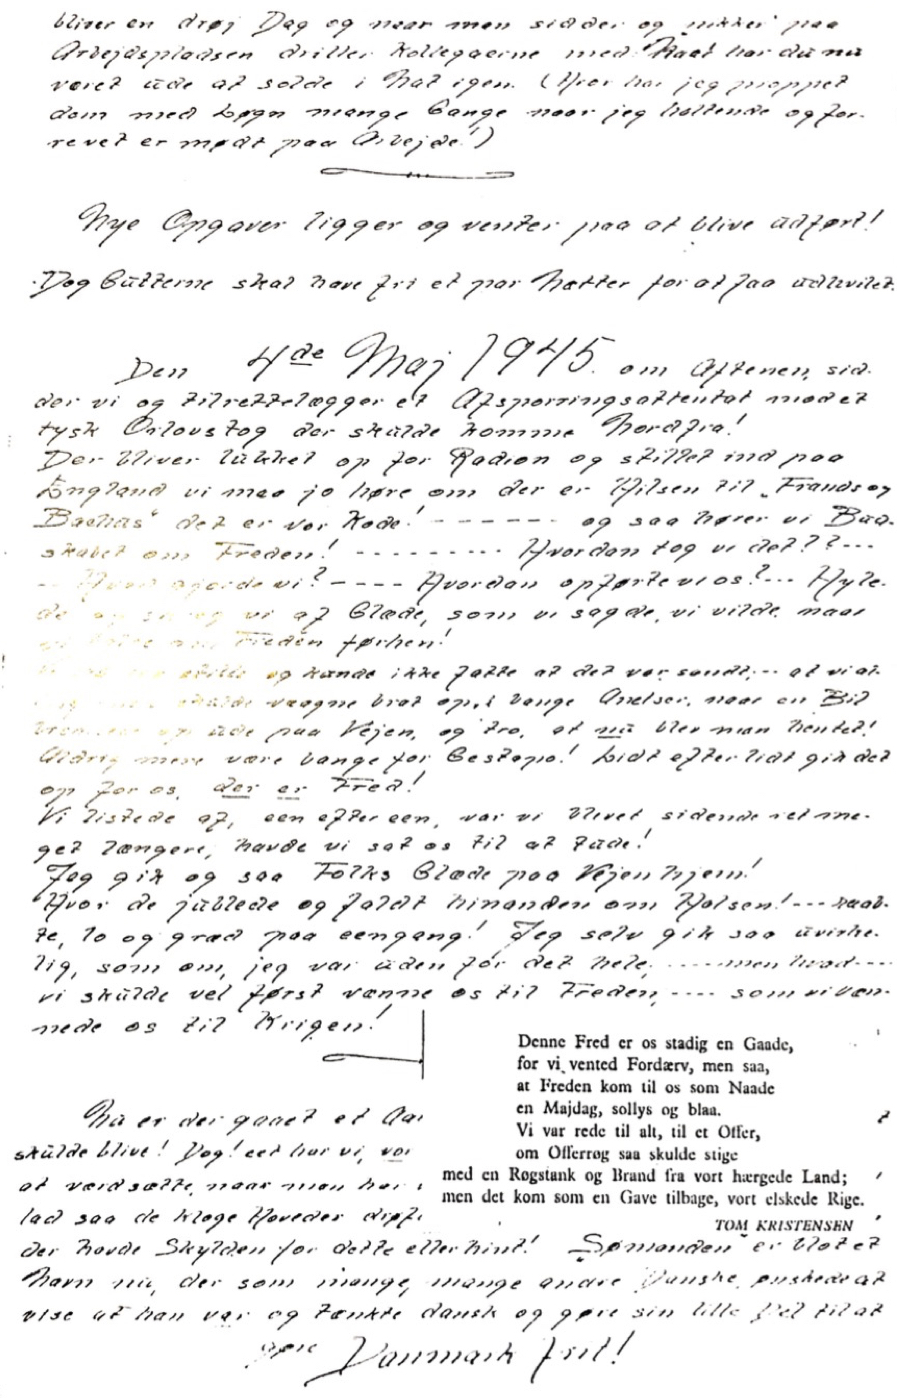 bliver en drøj Dag og naar man sidder og nikker paa
Arbejdspladsen driller Kollegaerne med "Naat har du nu
været ude at solde i Nat igen. (Hvor har jeg proppet
dem med Løgn mange Gange naar jeg haltende og for-
revet er mødt paa Arbejde!)
Nye Opgaver ligger og venter paa at blive udført!
Dog Gutterne skal have fri et par Nætter for at faa udhvilet.
Den 4de Maj 1945. om Aftenen, sid-
der vi og tilrettelægger et Afsporringsattentat mod et
tysk Orlovstog der skulde komme Nordfra!
Der bliver lukket op for Radion og stillet ind paa
England vi maa jo høre om der er Hilsen til "Frands og
Bachus" det er vor Kode! ------ og saa hører vi Bud-
skabet om Freden! --------- Hvordan tog vi det??---
-- Hvad gjorde vi? ---- Hvordan opførte vi os?--- Hyle-
de vi af Glæde, som vi sagde, vi vilde, naar
Freden førhen!
stille og kunde ikke fatte at det var sandt,-- at vi al-
skulde vaagne brat op, i bange Anelser, naar en Bil
op ude paa Vejen, og tro, at nu blev man hentet!
Aldrig mere være bange for Gestapo! Lidt efter lidt gik det
op for os, der er Fred!
Vi listede af, een efter een, var vi blevet sidende ret me-
get længere, havde vi sat os til at tude!
Jeg gik og saa Folks Glæde paa Vejen hjem!
Hvor de jublede og faldt hinanden om Halsen! --- raab-
te, lo og græd paa eengang! Jeg selv gik saa uvirke-
lig, som om, jeg var uden for det hele, ----- men hvad----
vi skulde vel først vænne os til Freden, ---- som vi væn-
nede os til Krigen!
Denne Fred er os stadig en Gaade,
for vi vented Fordærv, men saa,
at Freden kom til os som Naade
en Majdag, sollys og blaa.
Vi var rede til alt, til et Offer,
om Offerrøg saa skulde stige
med en Røgstank og Brand fra vort hærgede Land;
men det kom som en Gave tilbage, vort elskede Rige.
TOM KRISTENSEN
Nu er der gaaet et Aar
skulde blive! Dog! eet har vi, vor
at værdsætte, naar man har
lad saa de kloge Hoveder drøf
der havde Skylden for dette eller hint! "Sømanden" er blot et
Navn nu, der som mange, mange andre Danske, ønskede at
vise at han var og tænkte dansk og gøre sin lille Del til at
gøre Danmark frit!